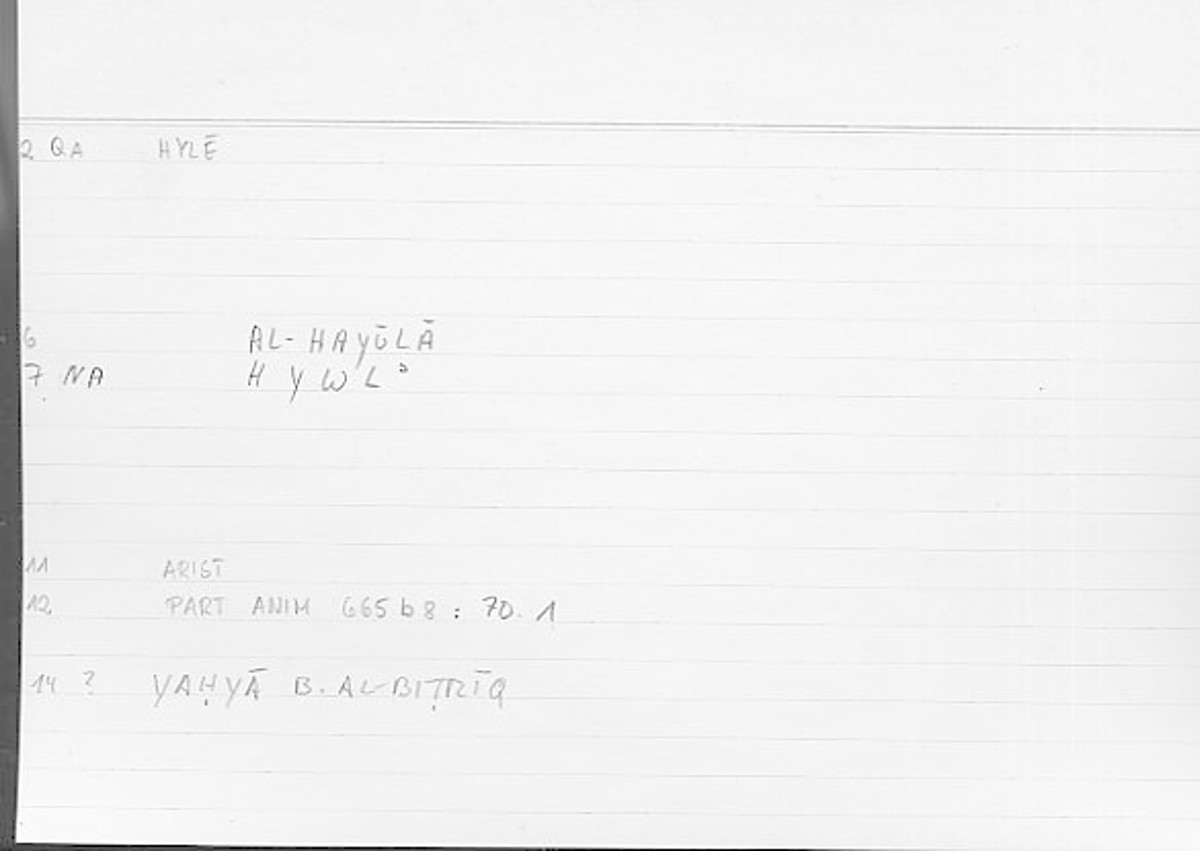 2 QA HYLĒ
6 AL-HAYŪLĀ
7 NA H Y W L ᵓ
11 ARIST
12 PART ANIM 665 b 8 : 70. 1
14 ? YAḤYĀ B. AL-BIṬRĪQ